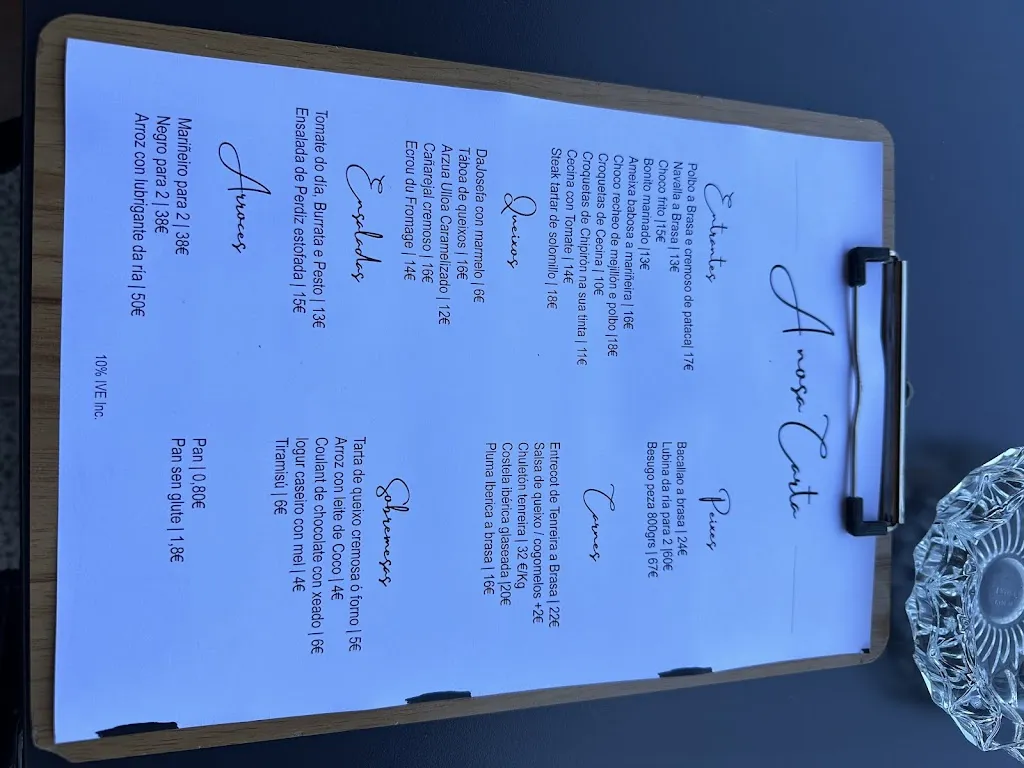 A nosa Carta
Entrantes
Polbo a Brasa e cremoso de pataca| 17€
Navalla a Brasa | 13€
Choco frito |15€
Bonito marinado | 13€
Ameixa babosa a mariñeira | 16€
Choco recheo de mejillon e polbo |18€
Croquetas de Cecina | 10€
Croquetas de Chipirón na sua tinta | 11€
Cecina con Tomate | 14€
Steak tartar de solomillo | 18€
Queixos
DaJosefa con marmelo | 6€
Táboa de queixos | 16€
Arzua Ulloa Caramelizado | 12€
Cañarejal cremoso | 16€
Ecrou du Fromage | 14€
Ensaladas
Tomate do día, Burrata e Pesto | 13€
Ensalada de Perdiz estofada | 15€
Arroces
Mariñeiro para 2 | 38€
Negro para 2 | 38€
Arroz con lubrigante da ría | 50€
Peixes
Bacallao a brasa | 24€
Lubina da ría para 2 |60€
Besugo peza 800grs | 67€
Carnes
Entrecot de Tenreira a Brasa | 22€
Salsa de queixo / cogomelos +2€
Chuletón tenreira | 32 €/Kg
Costela ibérica glaseada |20€
Pluma Iberica a brasa | 16€
Sobremesas
Tarta de queixo cremosa ó forno | 5€
Arroz con leite de Coco | 4€
Coulant de chocolate con xeado | 6€
Iogur caseiro con mel | 4€
Tiramisú | 6€
Pan | 0,80€
Pan sen glute | 1,8€
10% IVE Inc.